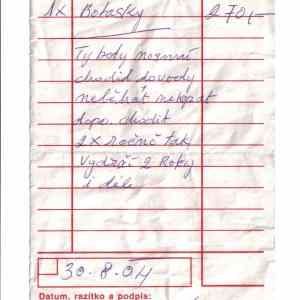 1x Botasky 270,-
Ty body nesmí
chodid do vody
neběhat nekopat
dopo. chodit
2x ročně tak
Vydrží 2 Roky
i déle
30.8.04
Datum, razítko a podpis: